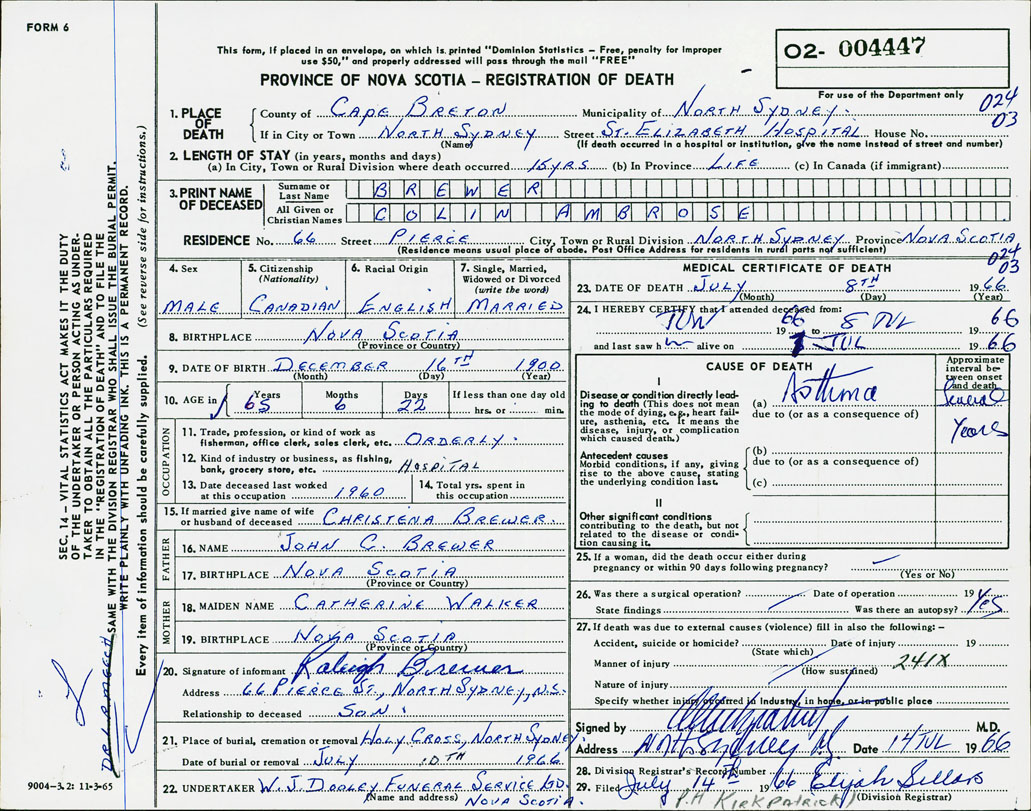 FORM 6
This form, if placed in an envelope, on which is printed "Dominion Statistics – Free, penalty for improper
use $50," and properly addressed will pass through the mail "FREE"
PROVINCE OF NOVA SCOTIA – REGISTRATION OF DEATH
O2- 004447
For use of the Department only
024
03
1. PLACE OF DEATH
County of CAPE BRETON Municipality of NORTH SYDNEY.
If in City or Town NORTH SYDNEY Street ST. ELIZABETH HOSPITAL House No.
(Name) (If death occurred in a hospital or institution, give the name instead of street and number)
2. LENGTH OF STAY (in years, months and days)
(a) In City, Town or Rural Division where death occurred 15 YRS. (b) In Province LIFE (c) In Canada (if immigrant)
3. PRINT NAME OF DECEASED
Surname or Last Name BREWER
All Given or Christian Names COLIN AMBROSE
RESIDENCE No. 66 Street PIERCE City, Town or Rural Division NORTH SYDNEY Province NOVA SCOTIA
(Residence means usual place of abode. Post Office Address for residents in rural parts not sufficient)
024
03
4. Sex
MALE
5. Citizenship (Nationality)
CANADIAN
6. Racial Origin
ENGLISH
7. Single, Married, Widowed or Divorced (write the word)
MARRIED
8. BIRTHPLACE NOVA SCOTIA
(Province or Country)
9. DATE OF BIRTH DECEMBER 16TH 1900
(Month) (Day) (Year)
10. AGE in Years 65 Months 6 Days 22 If less than one day old hrs. or min.
OCCUPATION
11. Trade, profession, or kind of work as
fisherman, office clerk, sales clerk, etc. ORDERLY.
12. Kind of industry or business, as fishing,
bank, grocery store, etc. HOSPITAL
13. Date deceased last worked
at this occupation 1960
14. Total yrs. spent in
this occupation
15. If married give name of wife
or husband of deceased CHRISTENA BREWER.
FATHER
16. NAME JOHN C. BREWER
17. BIRTHPLACE NOVA SCOTIA
(Province or Country)
MOTHER
18. MAIDEN NAME CATHERINE WALKER
19. BIRTHPLACE NOVA SCOTIA
(Province or Country)
20. Signature of informant Raleigh Brewer
Address 66 PIERCE ST., NORTH SYDNEY, N.S.
Relationship to deceased SON.
21. Place of burial, cremation or removal HOLY CROSS, NORTH SYDNEY.
Date of burial or removal JULY 10TH 1966
22. UNDERTAKER W. J. DOOLEY FUNERAL SERVICE LTD.
(Name and address) NOVA SCOTIA.
MEDICAL CERTIFICATE OF DEATH
23. DATE OF DEATH JULY 8TH 1966.
(Month) (Day) (Year)
24. I HEREBY CERTIFY that I attended deceased from:
JUN 1966 to 8 JUL 1966
and last saw him alive on JUL 1966
CAUSE OF DEATH
Approximate interval between onset and death
I
Disease or condition directly leading
to death (This does not mean
the mode of dying, e.g., heart failure,
asthenia, etc. It means the
disease, injury, or complication
which caused death.)
(a) Asthma
due to (or as a consequence of)
Several
Years
Antecedent causes
Morbid conditions, if any, giving
rise to the above cause, stating
the underlying condition last.
(b)
due to (or as a consequence of)
(c)
II
Other significant conditions
contributing to the death, but not
related to the disease or condition
causing it.
25. If a woman, did the death occur either during
pregnancy or within 90 days following pregnancy?
(Yes or No)
26. Was there a surgical operation? Date of operation 19
State findings Was there an autopsy? Yes
27. If death was due to external causes (violence) fill in also the following: –
Accident, suicide or homicide? Date of injury 19
(State which)
Manner of injury 241X
(How sustained)
Nature of injury
Specify whether injury occurred in Industry, in home, or in public place
Signed by M.D.
Address Date 14 JUL 1966
28. Division Registrar's Record Number
29. Filed July 14th 1966 Elijah Sellars
(Division Registrar)
P.H KIRKPATRICK
SEC. 14 – VITAL STATISTICS ACT MAKES IT THE DUTY
OF THE UNDERTAKER OR PERSON ACTING AS UNDER-
TAKER TO OBTAIN ALL THE PARTICULARS REQUIRED
IN THE "REGISTRATION OF DEATH" AND TO FILE THE
SAME WITH THE DIVISION REGISTRAR WHO SHALL ISSUE THE BURIAL PERMIT.
WRITE PLAINLY WITH UNFADING INK. THIS IS A PERMANENT RECORD.
Every item of information should be carefully supplied. (See reverse side for instructions.)
9004-3.2: 11-3-65